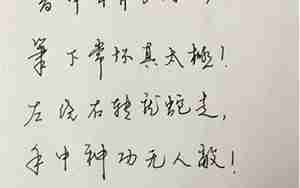 筆下常怀真太極！
左绕右转龙蛇走，
手中神功无人敵！